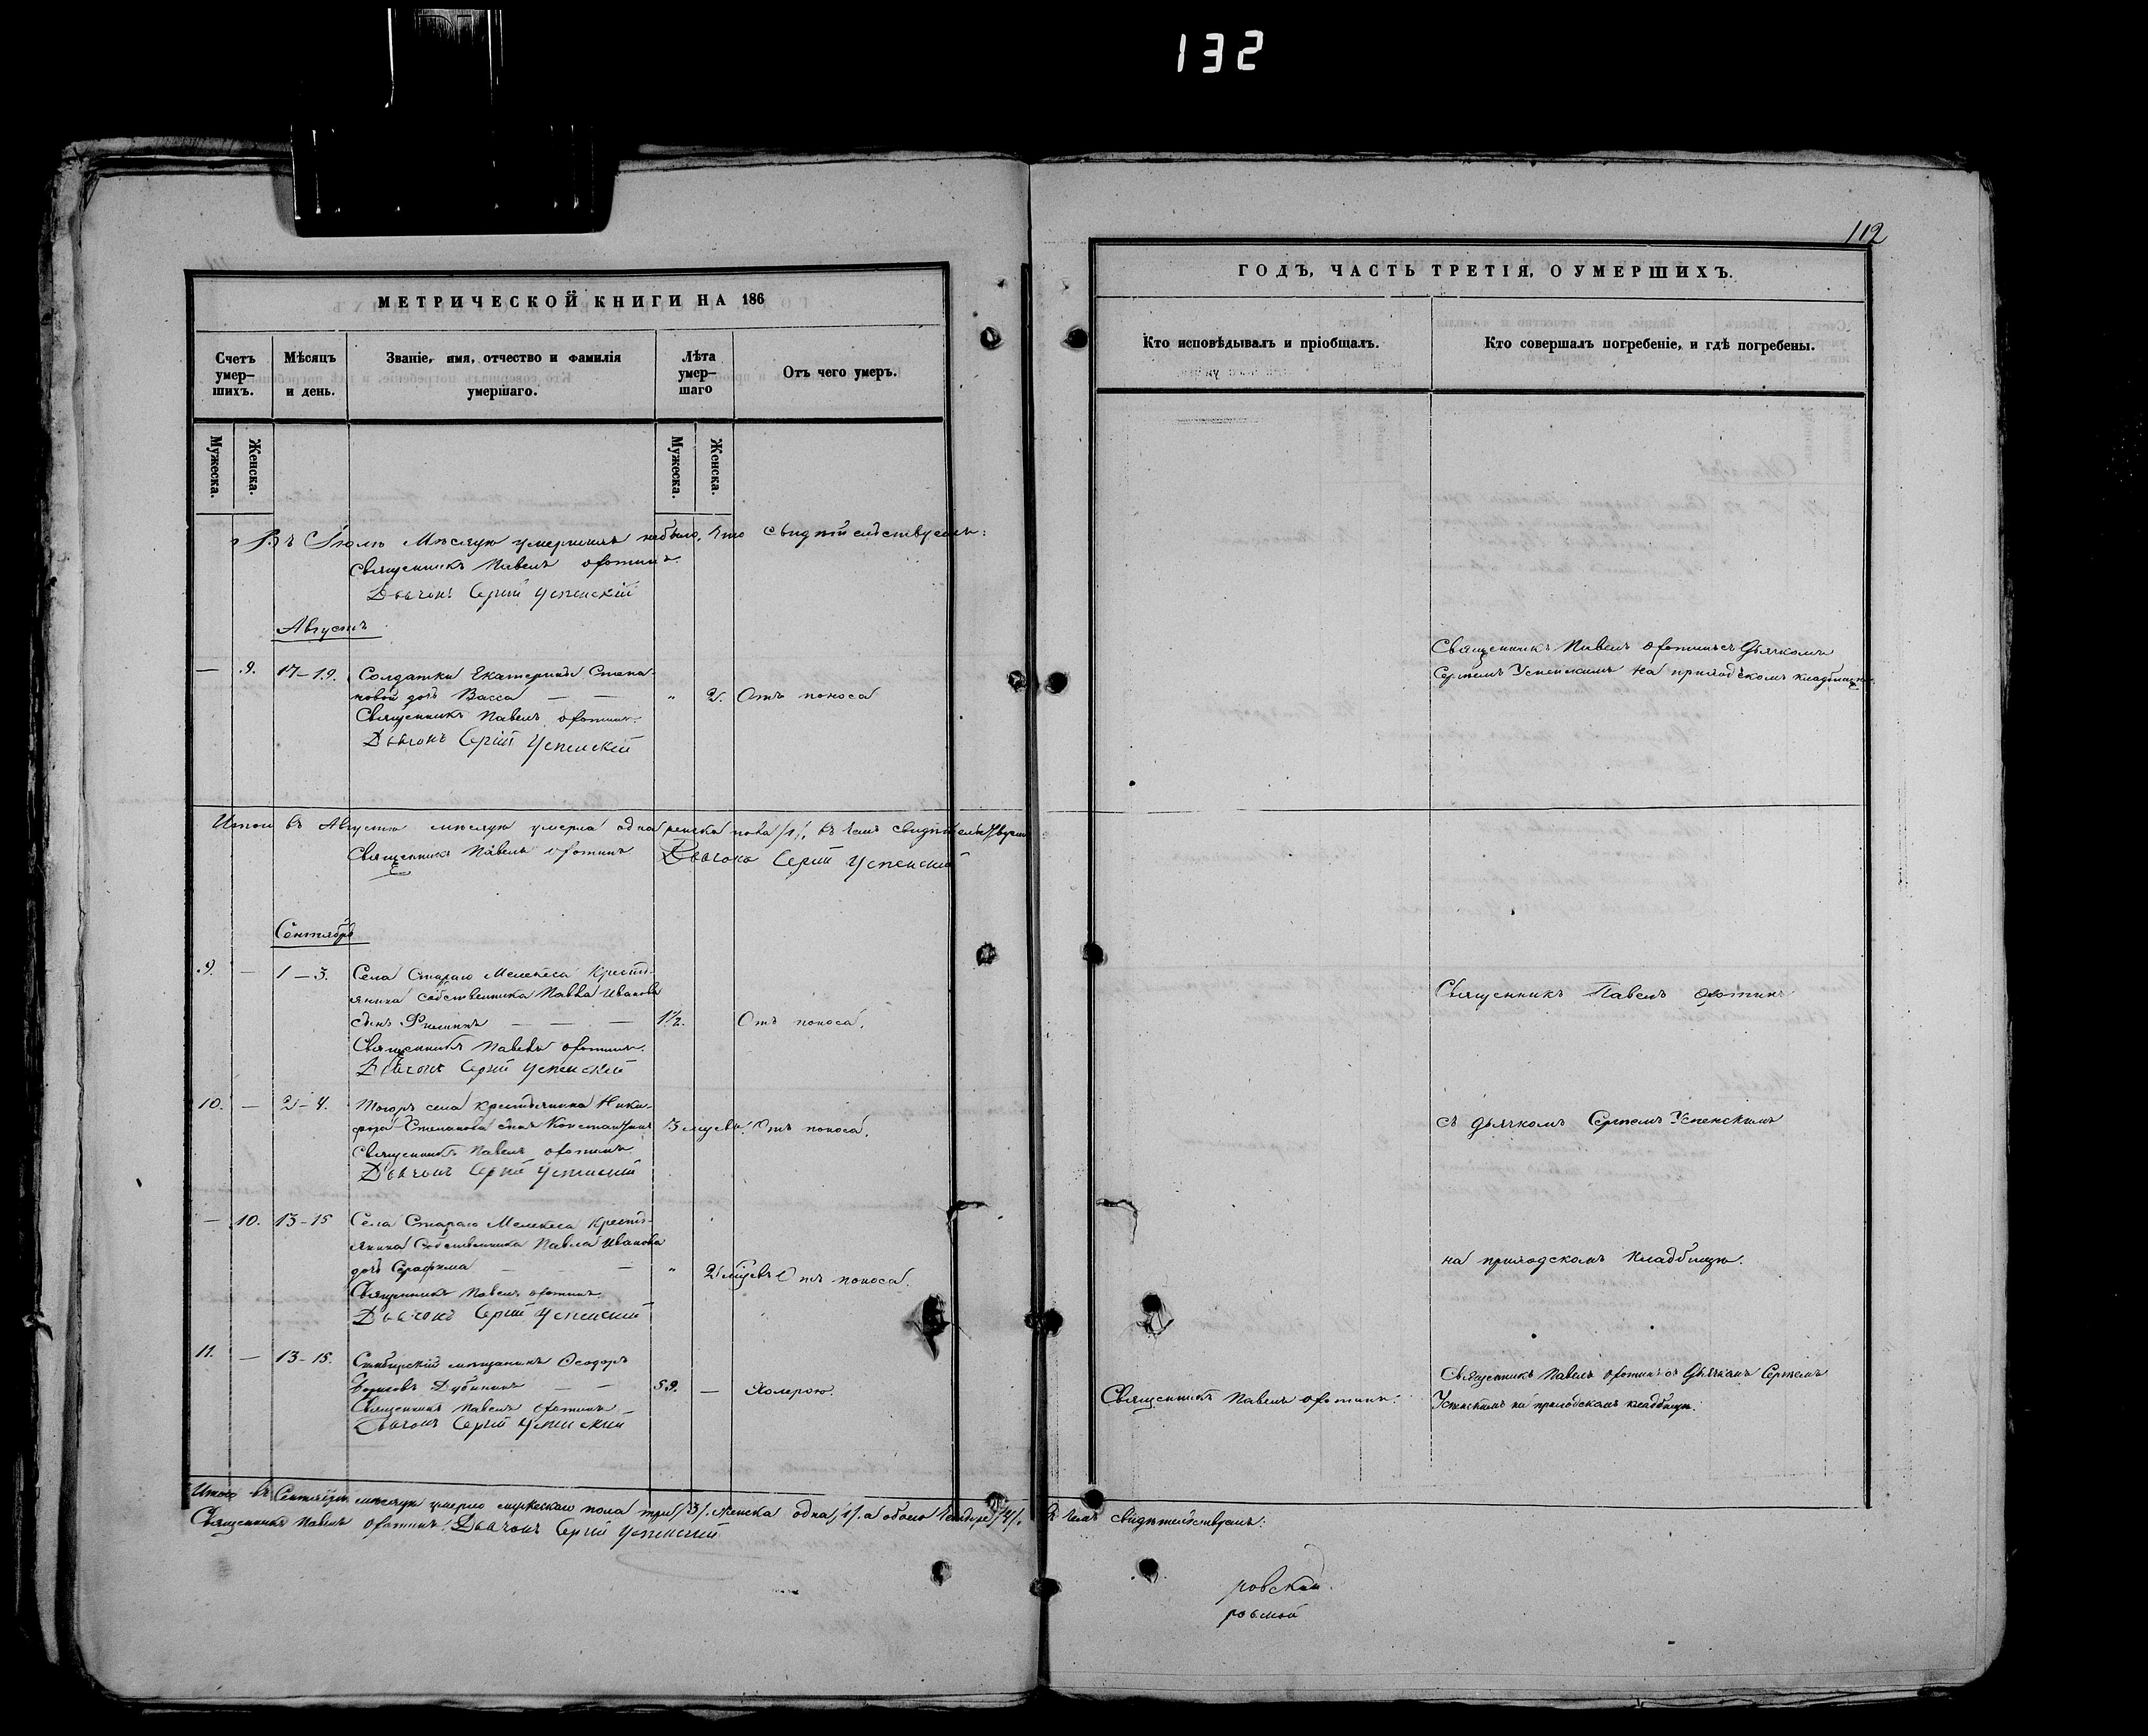 132
112
МЕТРИЧЕСКОЙ КНИГИ НА 186
Счетъ умер-шихъ.
Мѣсяцъ и день.
Званіе, имя, отчество и фамилія умершаго.
Лѣта умер-шаго
Отъ чего умеръ.
Мужеска.
Женска.
Мужеска.
Женска.
Въ Іюлѣ Мѣсяцѣ умершихъ небыло, что свидѣтельствуемъ:
Священникъ Павелъ Ѳотинъ.
Дьячокъ Сергій Успенскій
Августъ
— 9. 17–19. Солдатки Екатерины Степа-
новой дочь Васса — — " 2. Отъ поноса
Священникъ Павелъ Ѳотинъ.
Дьячокъ Сергій Успенскій
Итого въ Августѣ мѣсяцѣ умерла одна женска пола /1/, въ чемъ свидѣтельствуемъ
Священникъ Павелъ Ѳотинъ Дьячокъ Сергій Успенскій
Сентябрь
9. — 1–3. Села Стараго Мелекеса Кресть-
янина собственника Павла Иванова
сынъ Филиппъ — — — 1½. Отъ поноса.
Священникъ Павелъ Ѳотинъ.
Дьячокъ Сергій Успенскій
10. — 2–4. Тогожъ села крестьянина Ники-
фора Степанова сынъ Константинъ 3 мѣсяц. Отъ поноса.
Священникъ Павелъ Ѳотинъ
Дьячокъ Сергій Успенскій
— 10. 13–15 Села Стараго Мелекеса Кресть-
янина Собственника Павла Иванова
дочь Серафима — — " 2 мѣсяц. Отъ поноса.
Священникъ Павелъ Ѳотинъ.
Дьячокъ Сергій Успенскій
11. — 13–15. Симбирскій мѣщанинъ Ѳеодоръ
Борисовъ Дубининъ — — 59. — Холерою.
Священникъ Павелъ Ѳотинъ
Дьячокъ Сергій Успенскій
Итого въ Сентябрѣ мѣсяцѣ умерло мужескаго пола три /3/. женска одна /1/. а обоего четыре /4/. Въ чемъ свидѣтельствуемъ:
Священникъ Павелъ Ѳотинъ. Дьячокъ Сергій Успенскій
ГОДЪ, ЧАСТЬ ТРЕТІЯ, О УМЕРШИХЪ.
Кто исповѣдывалъ и пріобщалъ.
Кто совершалъ погребеніе, и гдѣ погребены.
Священникъ Павелъ Ѳотинъ съ Дьячкомъ
Сергіемъ Успенскимъ на приходскомъ кладбищѣ.
Священникъ Павелъ Ѳотинъ
съ дьячкомъ Сергіемъ Успенскимъ
на приходскомъ кладбищѣ.
Священникъ Павелъ Ѳотинъ.
Священникъ Павелъ Ѳотинъ съ Дьячкомъ Сергіемъ
Успенскимъ на приходскомъ кладбищѣ.